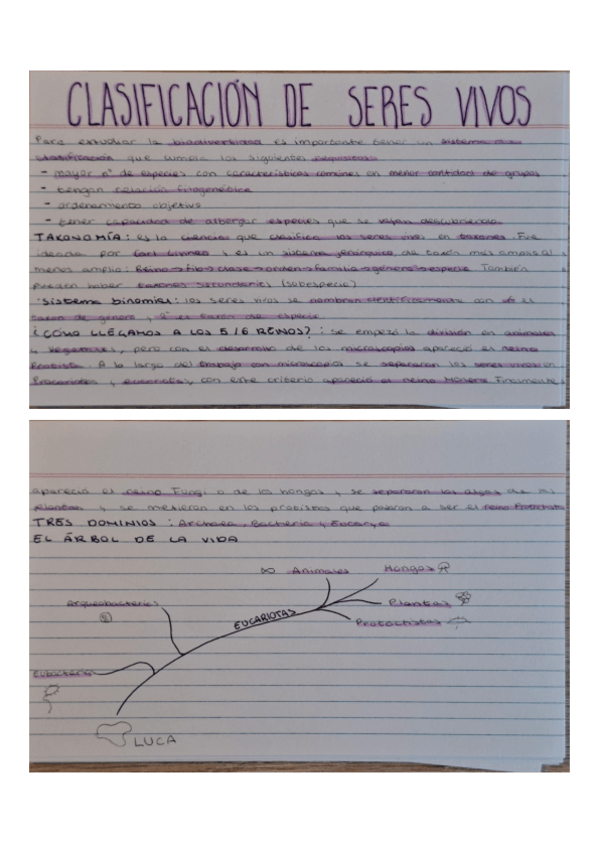 CLASIFICACIÓN DE SERES VIVOS
Para estudiar la biodiversidad es importante tener un sistema de
clasificación que cumpla los siguientes requisitos:
- mayor nº de especies con características comunes en menor cantidad de grupos
- tengan relación filogenética
- ordenamiento objetivo
- tener capacidad de albergar especies que se vayan descubriendo
TAXONOMÍA: es la ciencia que clasifica los seres vivos en taxones. Fue
ideada por Carl Linneo y es un sistema jerárquico de taxón más amplio al
menos amplio: Reino→filo→clase→orden→familia→género→especie. También
pueden haber taxones secundarios (subespecie)
·Sistema binomial: los seres vivos se nombran científicamente con 1º el
taxón de género y 2º el taxón de especie
¿CÓMO LLEGAMOS A LOS 5/6 REINOS?: se empezó la división en animales
y vegetales, pero con el desarrollo de los microscopios apareció el reino
Protista. A lo largo del trabajo con microscopios se separaron los seres vivos en
Procariotas y eucariotas, con este criterio apareció el reino Monera. Finalmente
apareció el reino Fungi o de los hongos y se separaron las algas de las
plantas y se metieron en los protistas que pasaron a ser el reino Protoctista
TRES DOMINIOS: Archaea, Bacteria y Eucarya
EL ÁRBOL DE LA VIDA
Animales
Hongos
Arqueobacterias
Plantas
EUCARIOTAS
Protoctistas
Eubacterias
LUCA